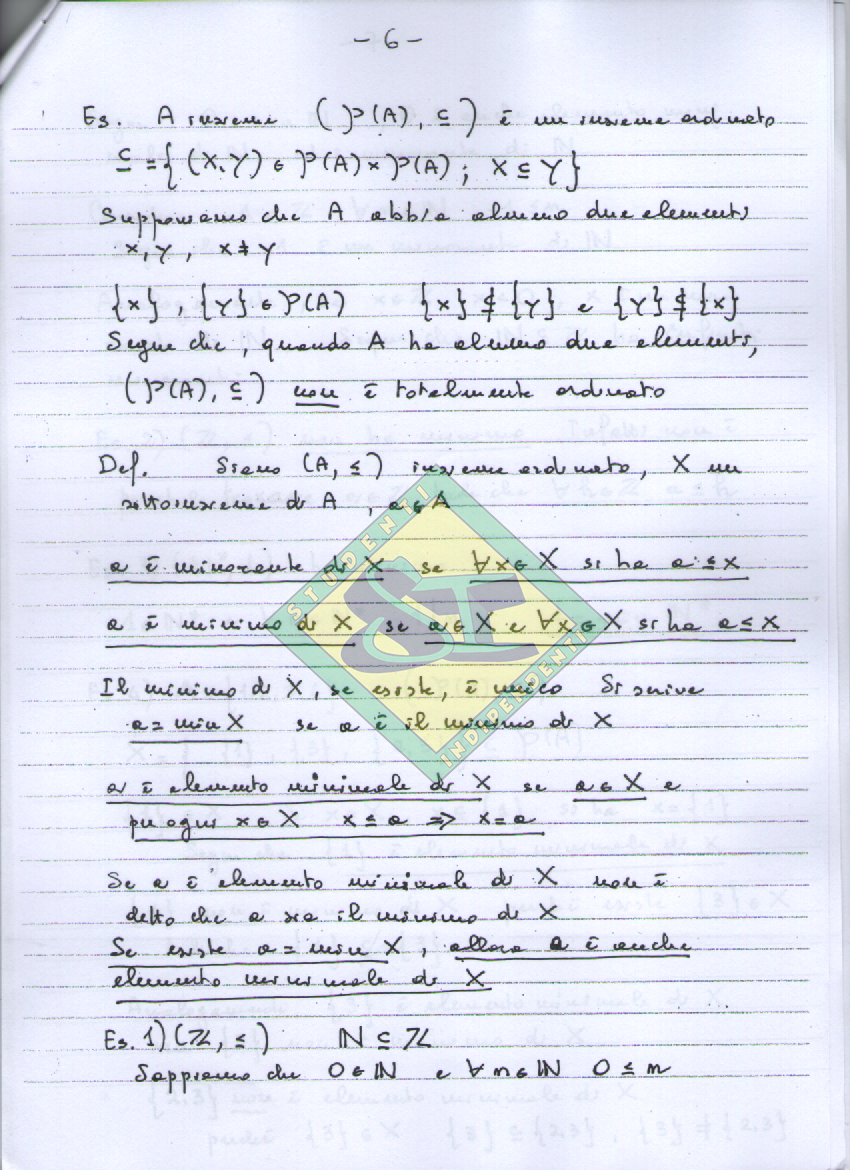 - 6 -
Es. A insieme (P(A), ⊆) è un insieme ordinato
⊆ = { (X,Y) ∈ P(A) × P(A) ; X ⊆ Y }
Supponiamo che A abbia almeno due elementi
x, y , x ≠ y
{x} , {y} ∈ P(A) {x} ⊈ {y} e {y} ⊈ {x}
Segue che , quando A ha almeno due elementi,
(P(A), ⊆) non è totalmente ordinato
Def. Siano (A, ≤) insieme ordinato, X un
sottoinsieme di A , a ∈ A
a è minorante di X se ∀x ∈ X si ha a ≤ x
a è minimo di X se a ∈ X e ∀x ∈ X si ha a ≤ x
Il minimo di X, se esiste, è unico Si scrive
a = min X se a è il minimo di X
a è elemento minimale di X se a ∈ X e
per ogni x ∈ X x ≤ a ⇒ x = a
Se a è elemento minimale di X non è
detto che a sia il minimo di X
Se esiste a = min X , allora a è anche
elemento minimale di X
Es. 1) (ℤ, ≤) ℕ ⊆ ℤ
Sappiamo che 0 ∈ ℕ e ∀ n ∈ ℕ 0 ≤ n
STUDENTI
SI
INDIPENDENTI